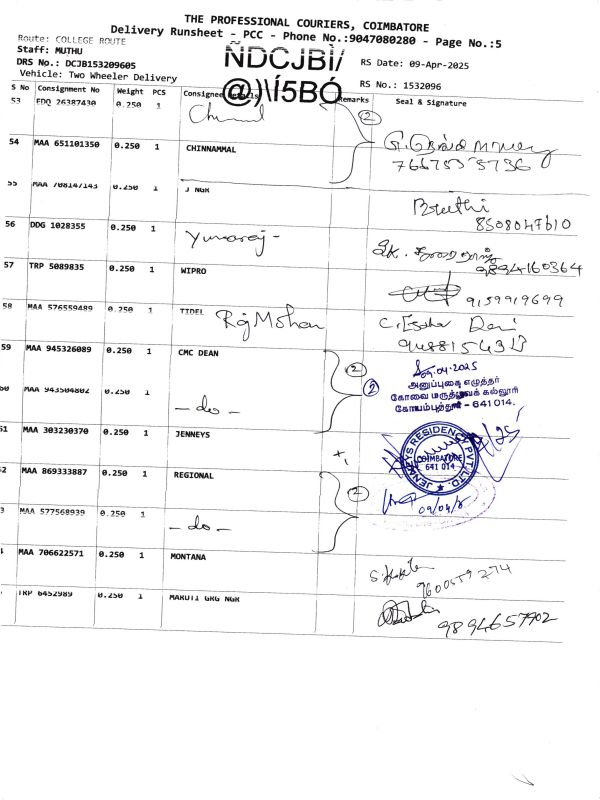 THE PROFESSIONAL COURIERS, COIMBATORE
Delivery Runsheet - PCC - Phone No.:9047080280 - Page No.:5
Route: COLLEGE ROUTE
Staff: MUTHU
DRS No.: DCJB153209605
Vehicle: Two Wheeler Delivery
ÑDCJBÌ/
@)\Í5BÓ
RS Date: 09-Apr-2025
RS No.: 1532096
S No Consignment No Weight PCS Consignee Details Remarks Seal & Signature
53 EDQ 26387430 0.250 1
54 MAA 651101350 0.250 1 CHINNAMMAL
2
7667535736
55 MAA 708147143 0.250 1 J NGR
8508047610
56 DDG 1028355 0.250 1 Yuvaraj
9894160364
57 TRP 5089835 0.250 1 WIPRO
9159919699
58 MAA 576559489 0.250 1 TIDEL Raj Mohan
59 MAA 945326089 0.250 1 CMC DEAN
2 2
09.04.2025
அனுப்புகை எழுத்தர்
கோவை மருத்துவக் கல்லூரி
கோயம்புத்தூர் - 641 014.
60 MAA 943504802 0.250 1 - do -
61 MAA 303230370 0.250 1 JENNEYS
JENNEYS RESIDENCY PVT. LTD.
COIMBATORE
641 014
62 MAA 869333887 0.250 1 REGIONAL
2
09/04/
3 MAA 577568939 0.250 1 - do -
MAA 706622571 0.250 1 MONTANA
9600559274
TRP 6452989 0.250 1 MARUTI GRG NGR
9894657902